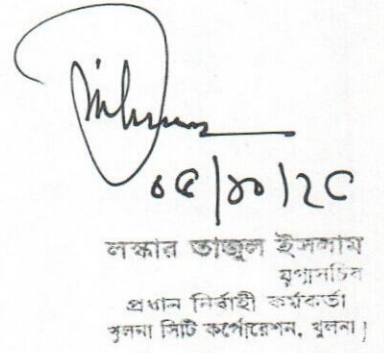 ০৫/১০/২৫
লস্কার তাজুল ইসলাম
যুগ্মসচিব
প্রধান নির্বাহী কর্মকর্তা
খুলনা সিটি কর্পোরেশন, খুলনা।